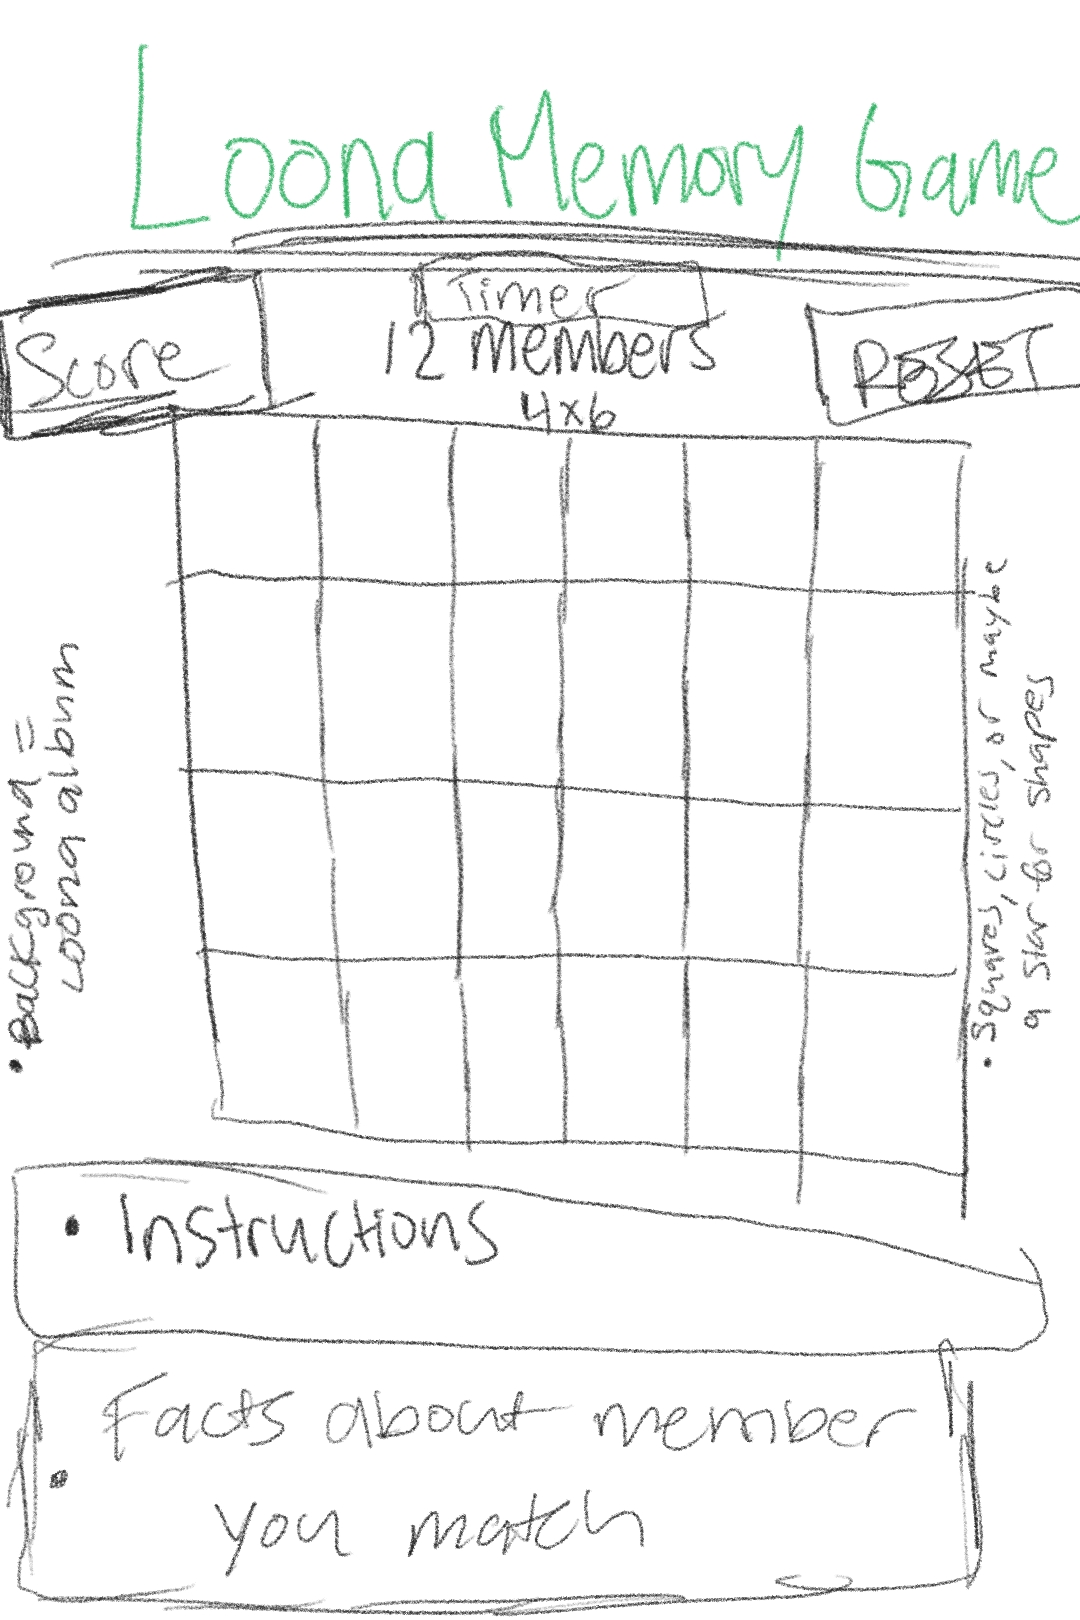 Loona Memory Game
Score
Timer
12 members
4x6
RESET
• Background =
Loona album
• Squares, circles, or maybe
a star for shapes
• Instructions
• Facts about member
you match